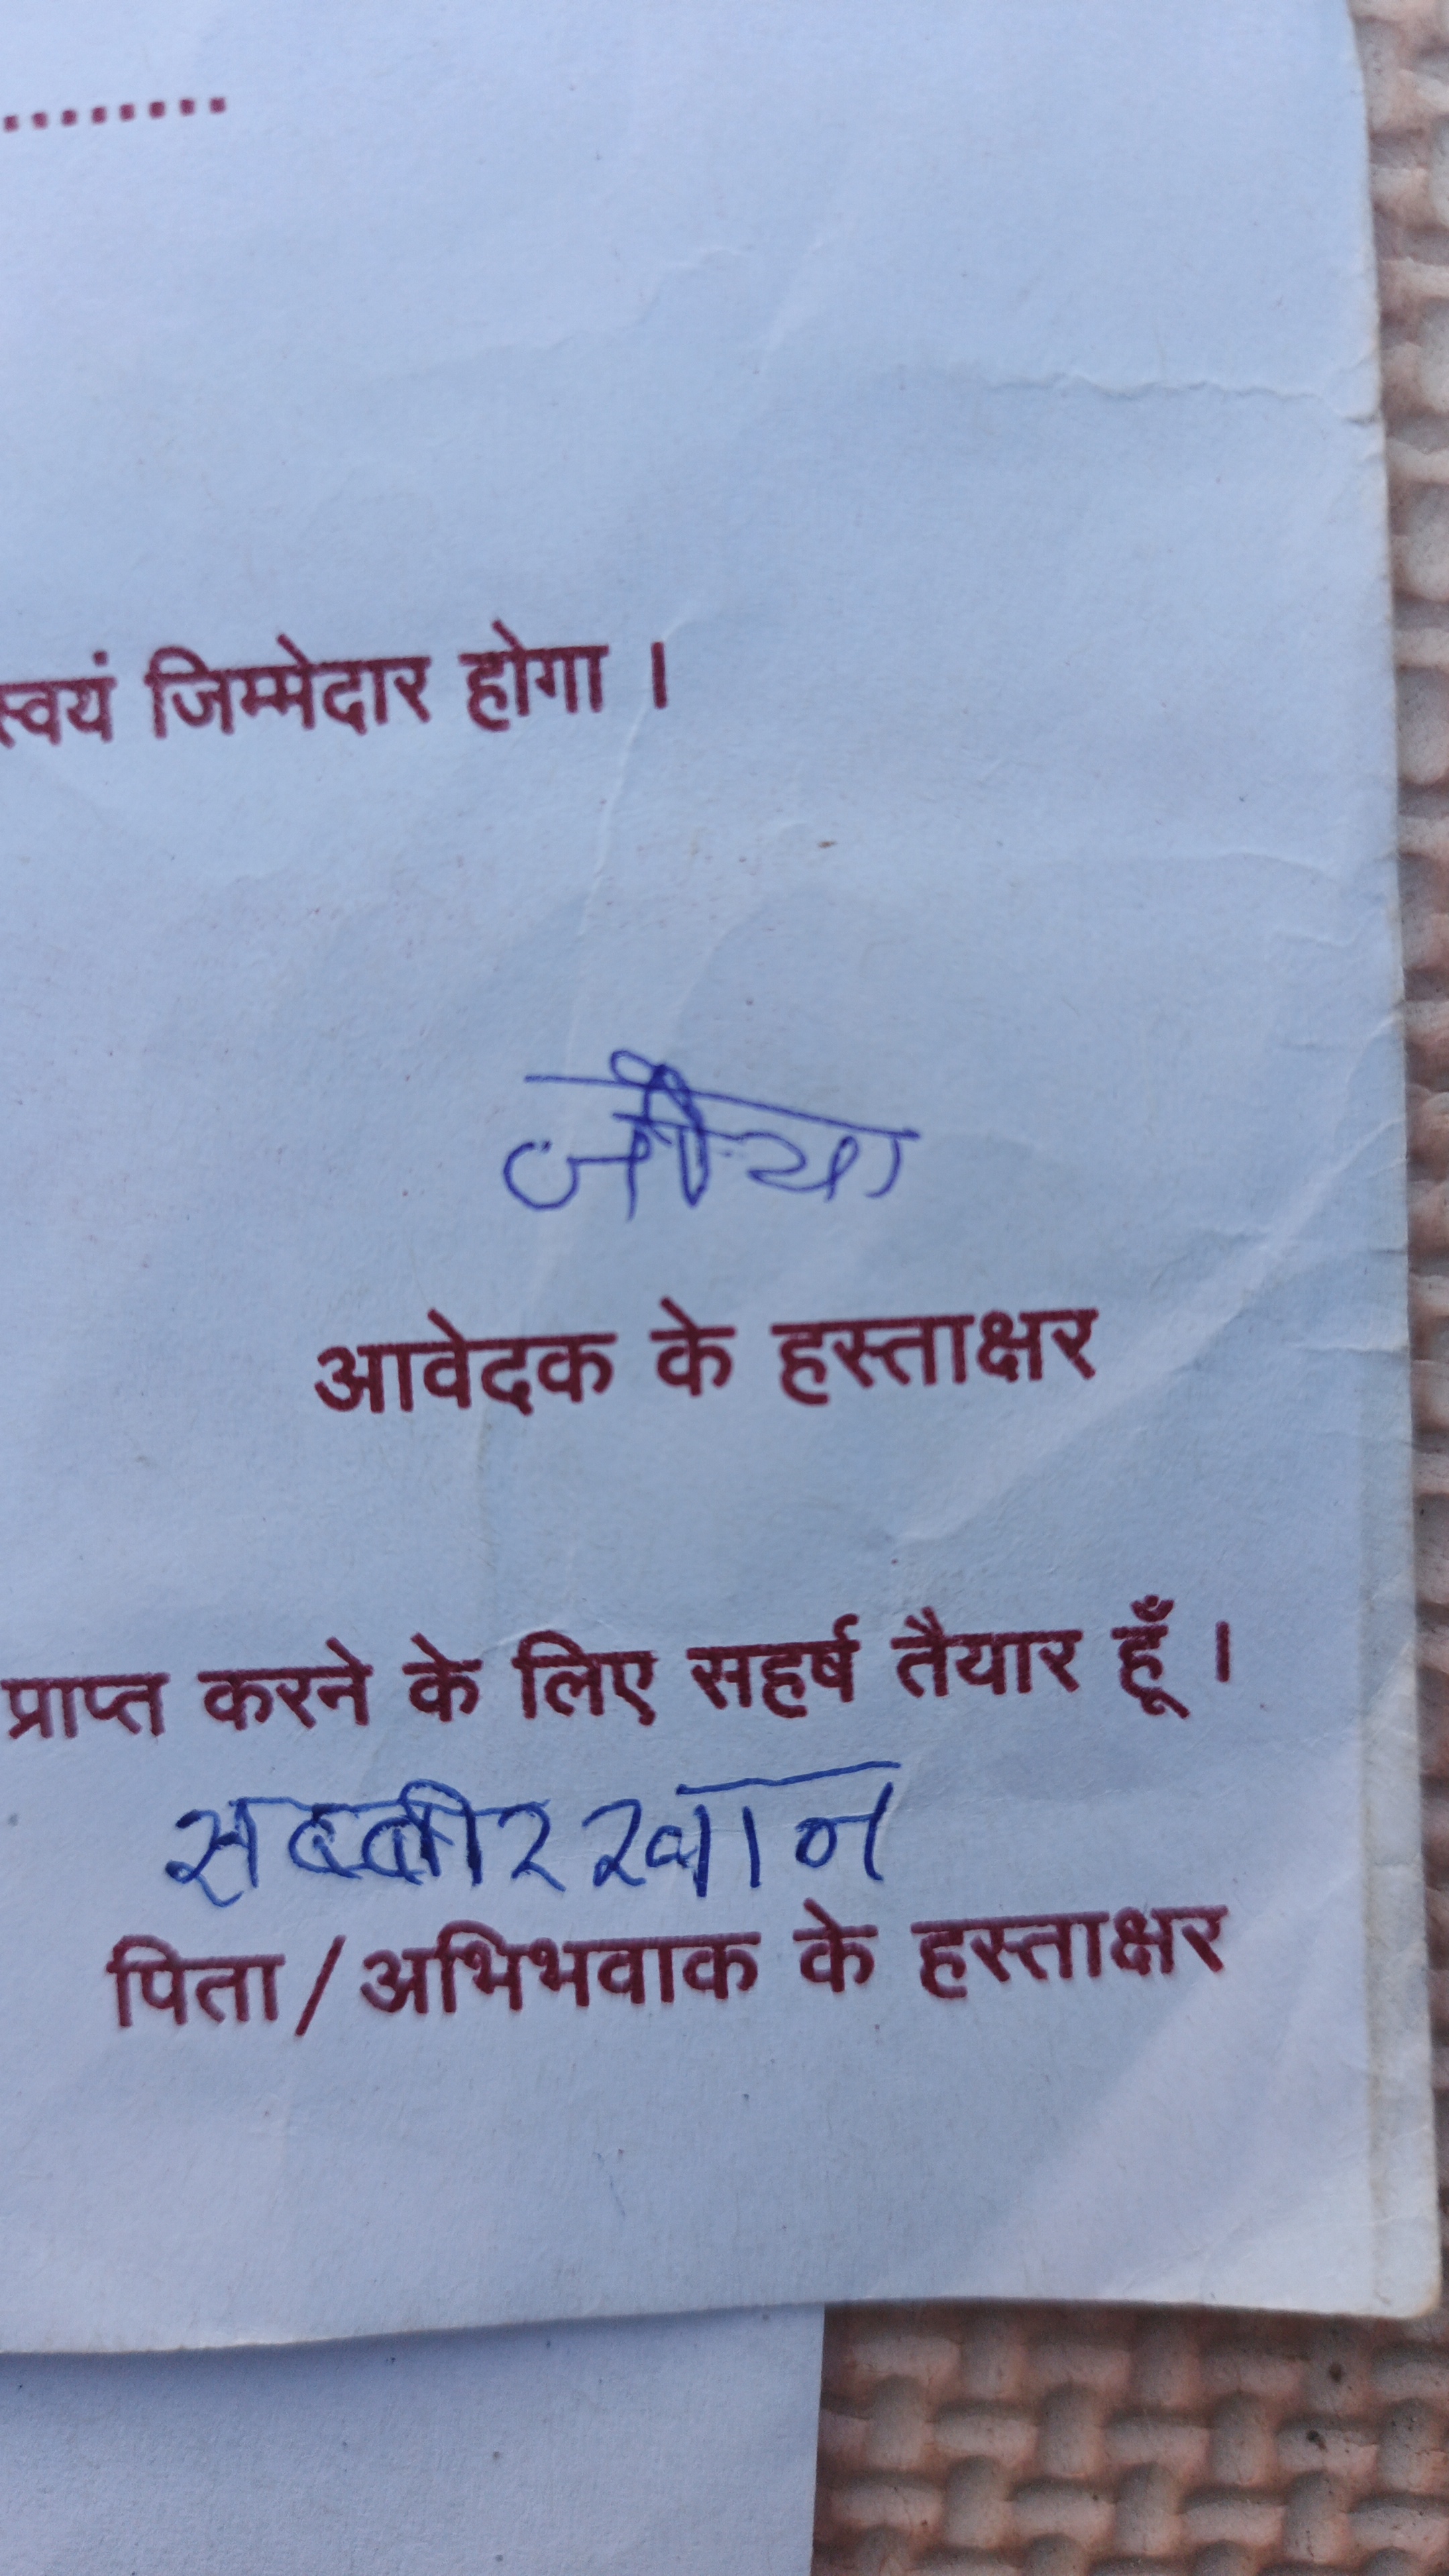 ........
स्वयं जिम्मेदार होगा ।
जीया
आवेदक के हस्ताक्षर
प्राप्त करने के लिए सहर्ष तैयार हूँ ।
सब्बीर खान
पिता/अभिभवाक के हस्ताक्षर